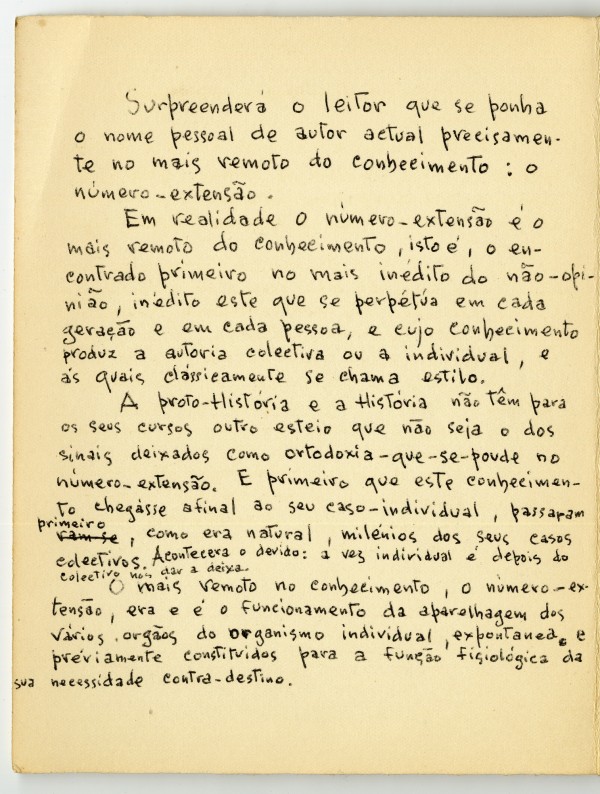 Surpreenderá o leitor que se ponha
o nome pessoal de autor actual precisamen-
te no mais remoto do conhecimento : o
número-extensão.
Em realidade o número-extensão é o
mais remoto do conhecimento, isto é, o en-
contrado primeiro no mais inédito do não-opi-
nião, inédito este que se perpétúa em cada
geração e em cada pessoa, e cujo conhecimento
produz a autoria colectiva ou a individual, e
ás quais clássicamente se chama estilo.
A proto-História e a História não têm para
os seus cursos outro esteio que não seja o dos
sinais deixados como ortodoxia-que-se-poude no
número-extensão. E primeiro que este conhecimen-
to chegásse afinal ao seu caso-individual, passaram
primeiro
ram-se, como era natural, milénios dos seus casos
colectivos. Acontecera o devido: a vez individual é depois do
colectivo nos dar a deixa.
O mais remoto no conhecimento, o número-ex-
tensão, era e é o funcionamento da aparelhagem dos
vários orgãos do organismo individual, expontanea, e
préviamente constituidos para a função fisiológica da
sua necessidade contra-destino.